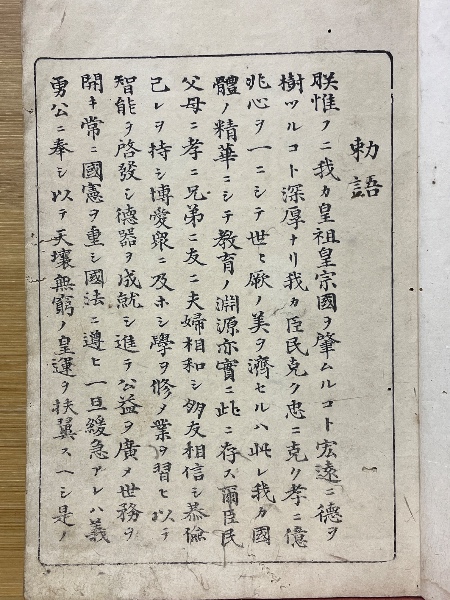 勅語
朕惟フニ我カ皇祖皇宗國ヲ肇ムルコト宏遠ニ德ヲ
樹ツルコト深厚ナリ我カ臣民克ク忠ニ克ク孝ニ億
兆心ヲ一ニシテ世ゝ厥ノ美ヲ濟セルハ此レ我カ國
體ノ精華ニシテ教育ノ淵源亦實ニ此ニ存ス爾臣民
父母ニ孝ニ兄弟ニ友ニ夫婦相和シ朋友相信シ恭儉
己レヲ持シ博愛衆ニ及ホシ學ヲ修メ業ヲ習ヒ以テ
智能ヲ啓發シ德器ヲ成就シ進テ公益ヲ廣メ世務ヲ
開キ常ニ國憲ヲ重シ國法ニ遵ヒ一旦緩急アレハ義
勇公ニ奉シ以テ天壤無窮ノ皇運ヲ扶翼スヘシ是ノ
一